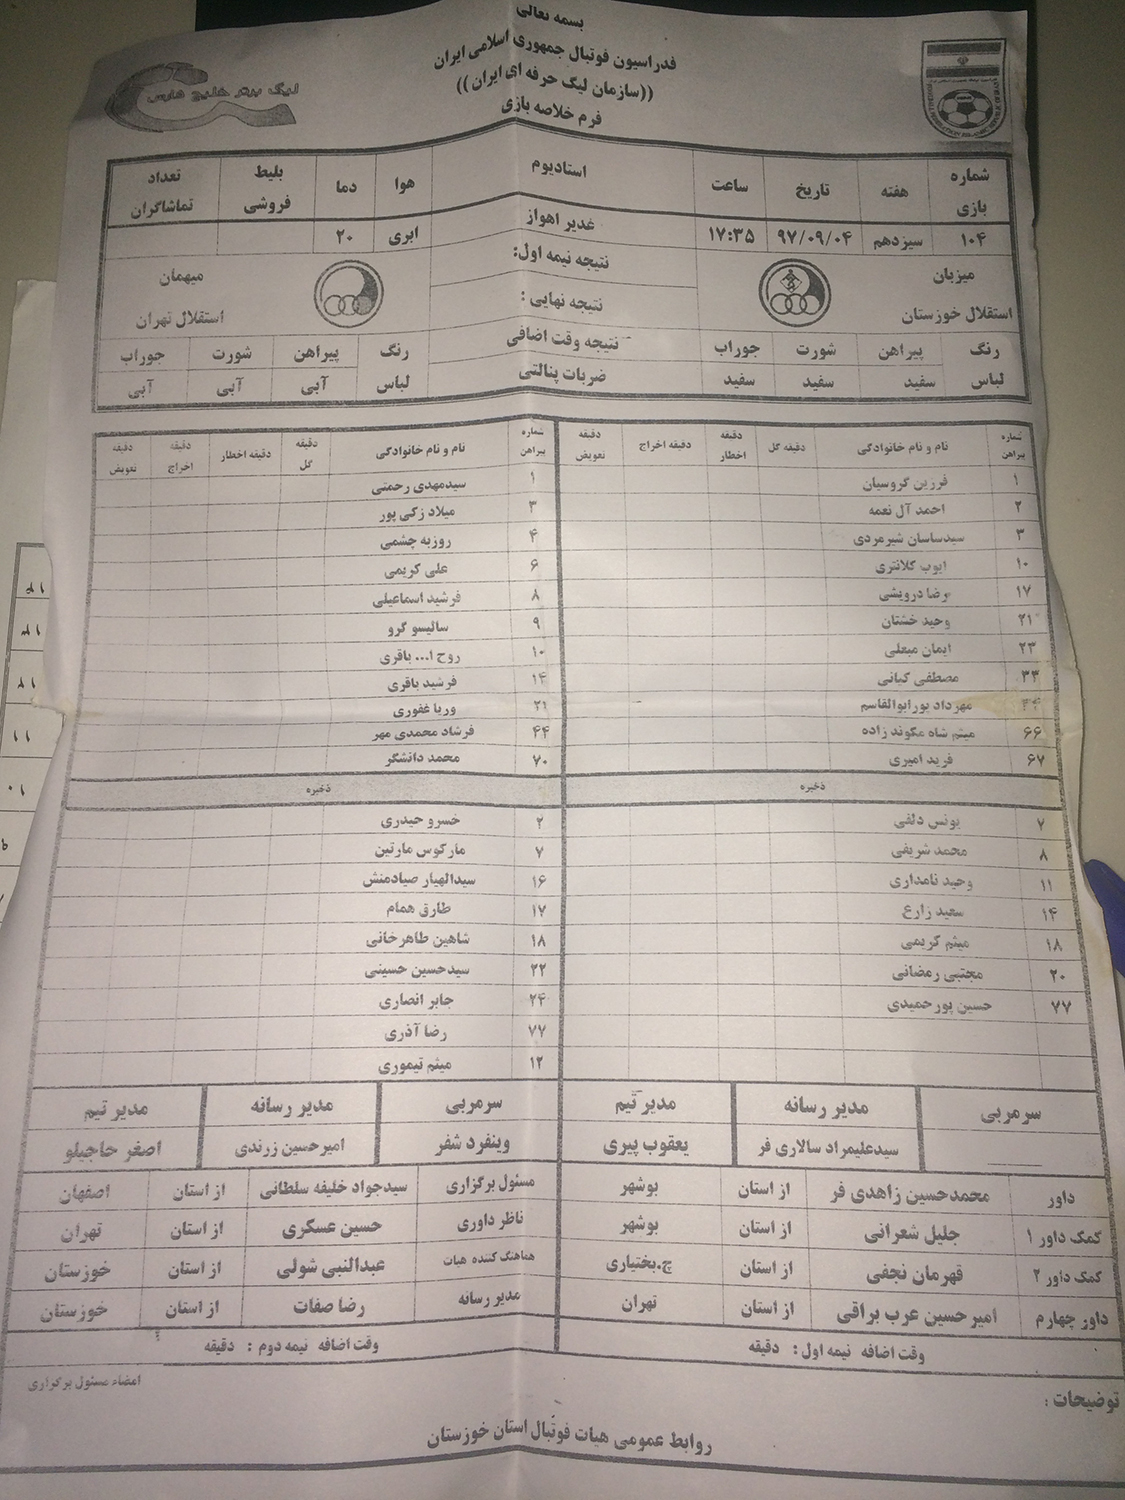 بسمه تعالی
فدراسیون فوتبال جمهوری اسلامی ایران
((سازمان لیگ حرفه ای ایران))
فرم خلاصه بازی
لیگ برتر خلیج فارس
شماره بازی هفته تاریخ ساعت استادیوم هوا دما بلیط فروشی تعداد تماشاگران
۱۰۴ سیزدهم ۹۷/۰۹/۰۴ ۱۷:۳۵ غدیر اهواز ابری ۲۰
میزبان نتیجه نیمه اول: میهمان
استقلال خوزستان نتیجه نهایی : استقلال تهران
رنگ پیراهن شورت جوراب نتیجه وقت اضافی رنگ پیراهن شورت جوراب
لباس سفید سفید سفید ضربات پنالتی لباس آبی آبی آبی
شماره پیراهن نام و نام خانوادگی دقیقه گل دقیقه اخطار دقیقه اخراج دقیقه تعویض شماره پیراهن نام و نام خانوادگی دقیقه گل دقیقه اخطار دقیقه اخراج دقیقه تعویض
۱ فرزین گروسیان ۱ سیدمهدی رحمتی
۲ احمد آل نعمه ۳ میلاد زکی پور
۳ سیدساسان شیرمردی ۴ روزبه چشمی
۱۰ ایوب کلانتری ۶ علی کریمی
۱۷ رضا درویشی ۸ فرشید اسماعیلی
۲۱ وحید خشتان ۹ سالیسو گرو
۲۳ ایمان مبعلی ۱۰ روح ا... باقری
۳۳ مصطفی کیانی ۱۴ فرشید باقری
مهرداد پورابوالقاسم ۲۱ وریا غفوری
۶۶ میثم شاه مکوند زاده ۴۴ فرشاد محمدی مهر
۶۷ فرید امیری ۷۰ محمد دانشگر
ذخیره ذخیره
۷ یونس دلفی ۲ خسرو حیدری
۸ محمد شریفی ۷ مارکوس مارتین
۱۱ وحید نامداری ۱۶ سیدالهیار صیادمنش
۱۴ سعید زارع ۱۷ طارق همام
۱۸ میثم کریمی ۱۸ شاهین طاهرخانی
۲۰ مجتبی رمضانی ۲۲ سیدحسین حسینی
۷۷ حسین پورحمیدی ۲۴ جابر انصاری
۷۷ رضا آذری
۱۲ میثم تیموری
سرمربی مدیر رسانه مدیر تیم سرمربی مدیر رسانه مدیر تیم
سیدعلیمراد سالاری فر یعقوب پیری وینفرد شفر امیرحسین زرندی اصغر حاجیلو
داور محمدحسین زاهدی فر از استان بوشهر مسئول برگزاری سیدجواد خلیفه سلطانی از استان اصفهان
کمک داور ۱ جلیل شعرانی از استان بوشهر ناظر داوری حسین عسکری از استان تهران
کمک داور ۲ قهرمان نجفی از استان چ.بختیاری هماهنگ کننده هیات عبدالنبی شولی از استان خوزستان
داور چهارم امیرحسین عرب براقی از استان تهران مدیر رسانه رضا صفات از استان خوزستان
وقت اضافه نیمه اول : دقیقه وقت اضافه نیمه دوم : دقیقه
توضیحات : امضاء مسئول برگزاری
روابط عمومی هیات فوتبال استان خوزستان
۱۴
۱۳
۱۲
۱۱
۱۰
۹